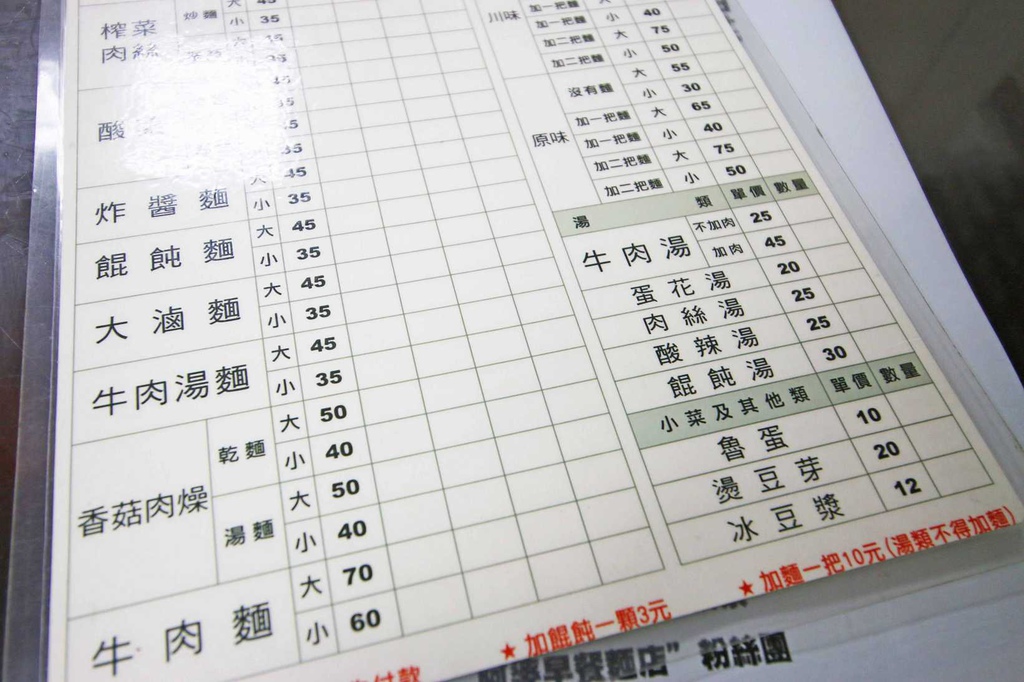 榨菜肉絲 炒麵 大 45
小 35
大 45
35
45
35
酸
45
35
炸醬麵 大 45
小 35
餛飩麵 大 45
小 35
大滷麵 大 45
小 35
牛肉湯麵 大 45
小 35
香菇肉燥 乾麵 大 50
小 40
湯麵 大 50
小 40
牛肉麵 大 70
小 60
川味 加一把麵 大
加一把麵 小 40
加二把麵 大 75
加二把麵 小 50
原味 沒有麵 大 55
小 30
加一把麵 大 65
加一把麵 小 40
加二把麵 大 75
加二把麵 小 50
湯類 單價 數量
牛肉湯 不加肉 25
加肉 45
蛋花湯 20
肉絲湯 25
酸辣湯 25
餛飩湯 30
小菜及其他類 單價 數量
魯蛋 10
燙豆芽 20
冰豆漿 12
付款 ★加餛飩一顆3元 ★加麵一把10元(湯類不得加麵)
早餐麵店” 粉絲團